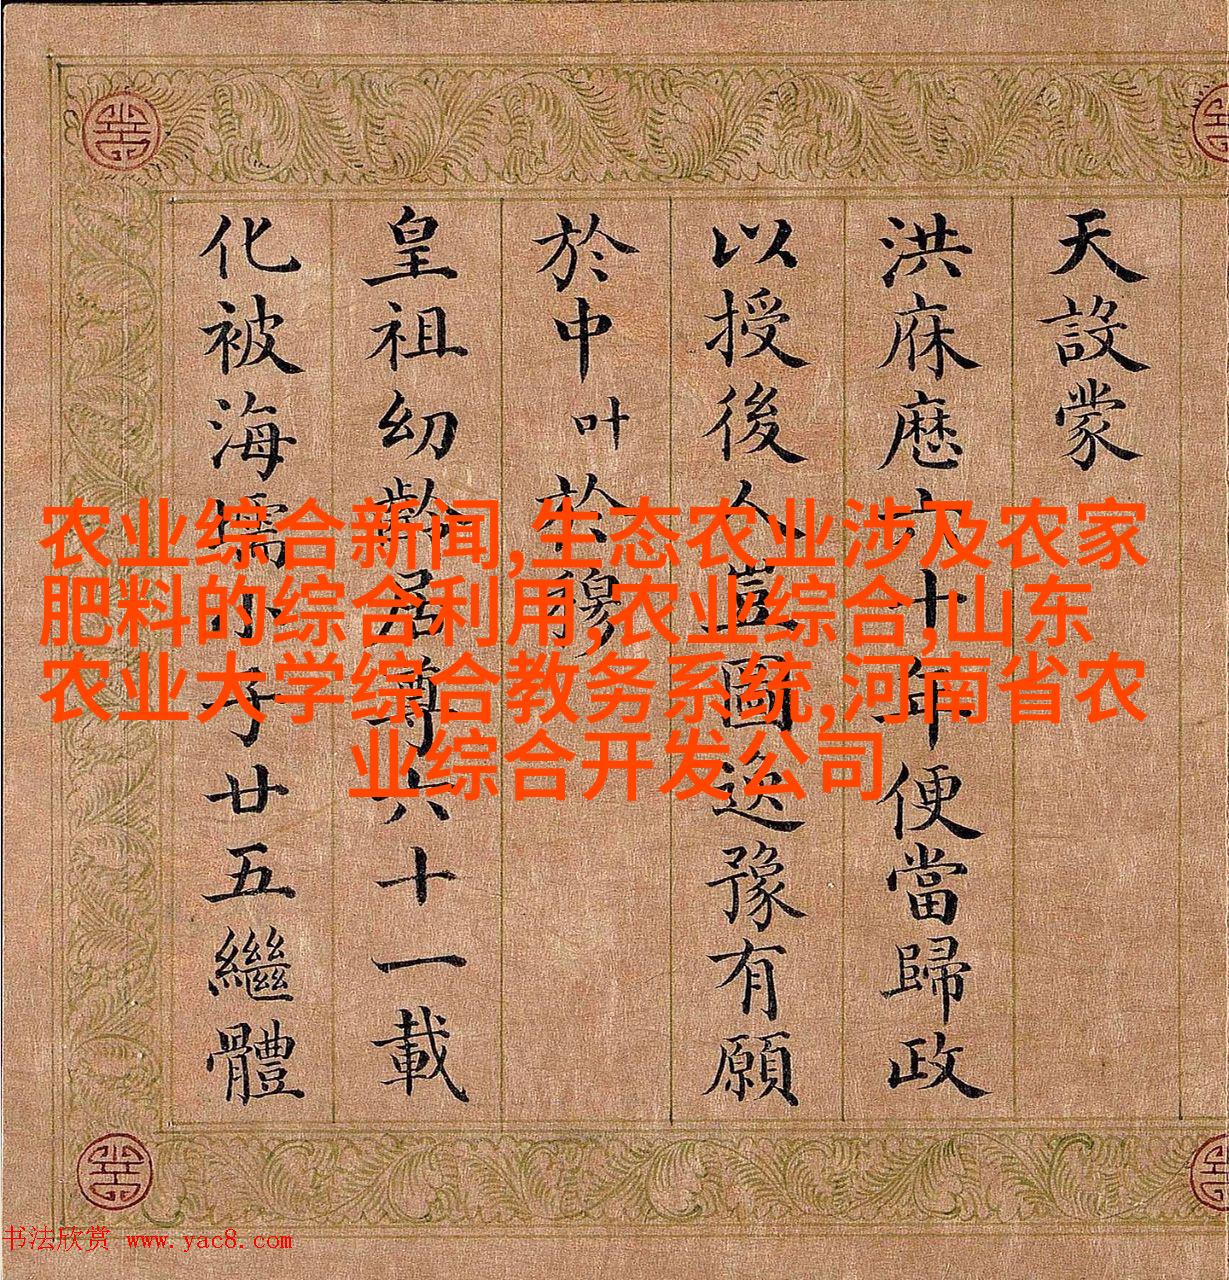 天設蒙
洪庥歷六十年便當歸政
以授後人豈圖逸豫有願
於中叶於穆
皇祖幼齡居尊六十一載
化被海壖小子廿五繼體
农业综合新闻,生态农业涉及农家
肥料的综合利用,农业综合,山东
农业大学综合教务系统,河南省农
业综合开发公司
书法欣赏 www.yac8.com